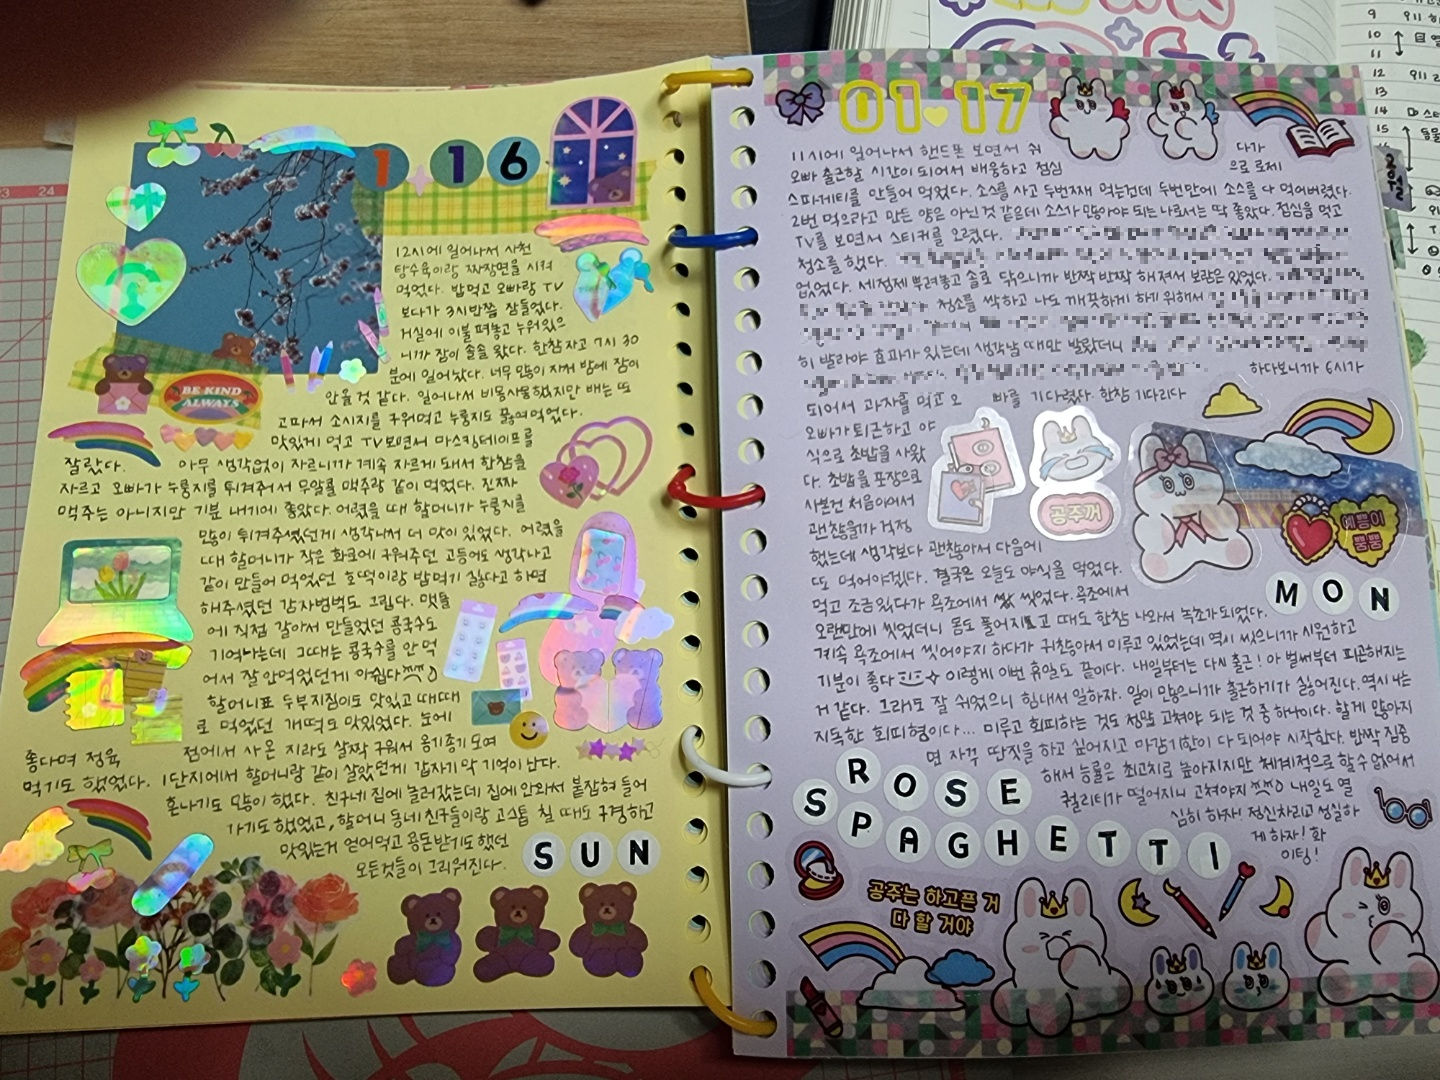 1 16
12시에 일어나서 사천
탕수육이랑 짜장면을 시켜
먹었다. 밥먹고 오빠랑 TV
보다가 3시반쯤 잠들었다.
거실에 이불 펴놓고 누워있으
니까 잠이 솔솔 왔다. 한참 자고 7시 30
분에 일어났다. 너무 많이 자서 밤에 잠이
안올 것 같다. 일어나서 비몽사몽했지만 배는 또
고파서 소시지를 구워먹고 누룽지도 끓여먹었다.
BE KIND
ALWAYS
맛있게 먹고 TV보면서 마스킹테이프를
잘랐다. 아무 생각없이 자르니까 계속 자르게 돼서 한참을
자르고 오빠가 누룽지를 튀겨줘서 무알콜 맥주랑 같이 먹었다. 진짜
맥주는 아니지만 기분 내기에 좋았다. 어렸을 때 할머니가 누룽지를
많이 튀겨주셨던게 생각나서 더 맛이 있었다. 어렸을
때 할머니가 작은 화로에 구워주던 고등어도 생각나고
같이 만들어 먹었던 호떡이랑 밥먹기 싫다고 하면
해주셨던 감자범벅도 그립다. 맷돌
에 직접 갈아서 만들었던 콩국수도
기억나는데 그때는 콩국수를 안 먹
어서 잘 안먹었던게 아쉽다
할머니표 두부지짐이도 맛있고 때때
로 먹었던 개떡도 맛있었다. 눈에
좋다며 정육점에서 사온 지라도 살짝 구워서 옹기종기 모여
먹기도 했었다. 1단지에서 할머니랑 같이 살았던게 갑자기 막 기억이 난다.
혼나기도 많이 했다. 친구네 집에 놀러갔는데 집에 안와서 붙잡혀 들어
가기도 했었고, 할머니 동네 친구들이랑 고스톱 칠 때도 구경하고
맛있는거 얻어먹고 용돈받기도 했던
모든것들이 그리워진다.
SUN
01 17
11시에 일어나서 핸드폰 보면서 쉬다가
오빠 출근할 시간이 되어서 배웅하고 점심으로 로제
스파게티를 만들어 먹었다. 소스를 사고 두번째 먹는건데 두번만에 소스를 다 먹어버렸다.
2번 먹으라고 만든 양은 아닌 것 같은데 소스가 많아야 되는 나로서는 딱 좋았다. 점심을 먹고
TV를 보면서 스티커를 오렸다.
청소를 했다.
없었다. 세정제 뿌려놓고 솔로 닦으니까 반짝반짝 해져서 보람은 있었다.
청소를 싹하고 나도 깨끗하게 하기 위해서
히 발라야 효과가 있는데 생각날 때만 발랐더니
하다보니까 6시가
되어서 과자를 먹고 오빠를 기다렸다. 한참 기다리다
오빠가 퇴근하고 야
식으로 초밥을 사왔
다. 초밥을 포장으로
사본건 처음이어서
괜찮을까 걱정
했는데 생각보다 괜찮아서 다음에
또 먹어야겠다. 결국은 오늘도 야식을 먹었다.
먹고 조금있다가 욕조에서 씻었다. 욕조에서
오랜만에 씻었더니 몸도 풀어지고 때도 한참 나와서 녹초가되었다.
계속 욕조에서 씻어야지 하다가 귀찮아서 미루고 있었는데 역시 씻으니까 시원하고
기분이 좋다 이렇게 이번 휴일도 끝이다. 내일부터는 다시 출근! 아 벌써부터 피곤해지는
거 같다. 그래도 잘 쉬었으니 힘내서 일하자. 일이 많으니까 출근하기가 싫어진다. 역시 나는
지독한 회피형이다... 미루고 회피하는 것도 정말 고쳐야 되는 것 중 하나이다. 할게 많아지
면 자꾸 딴짓을 하고 싶어지고 마감기한이 다 되어야 시작한다. 반짝 집중
해서 능률은 최고치로 높아지지만 체계적으로 할수 없어서
퀄리티가 떨어지니 고쳐야지 내일도 열
심히 하자! 정신차리고 성실하
게 하자! 화
이팅!
공주꺼
예쁨이
뿜뿜
MON
ROSE
SPAGHETTI
공주는 하고픈 거
다 할 거야
9
10
11
12
13
14
15